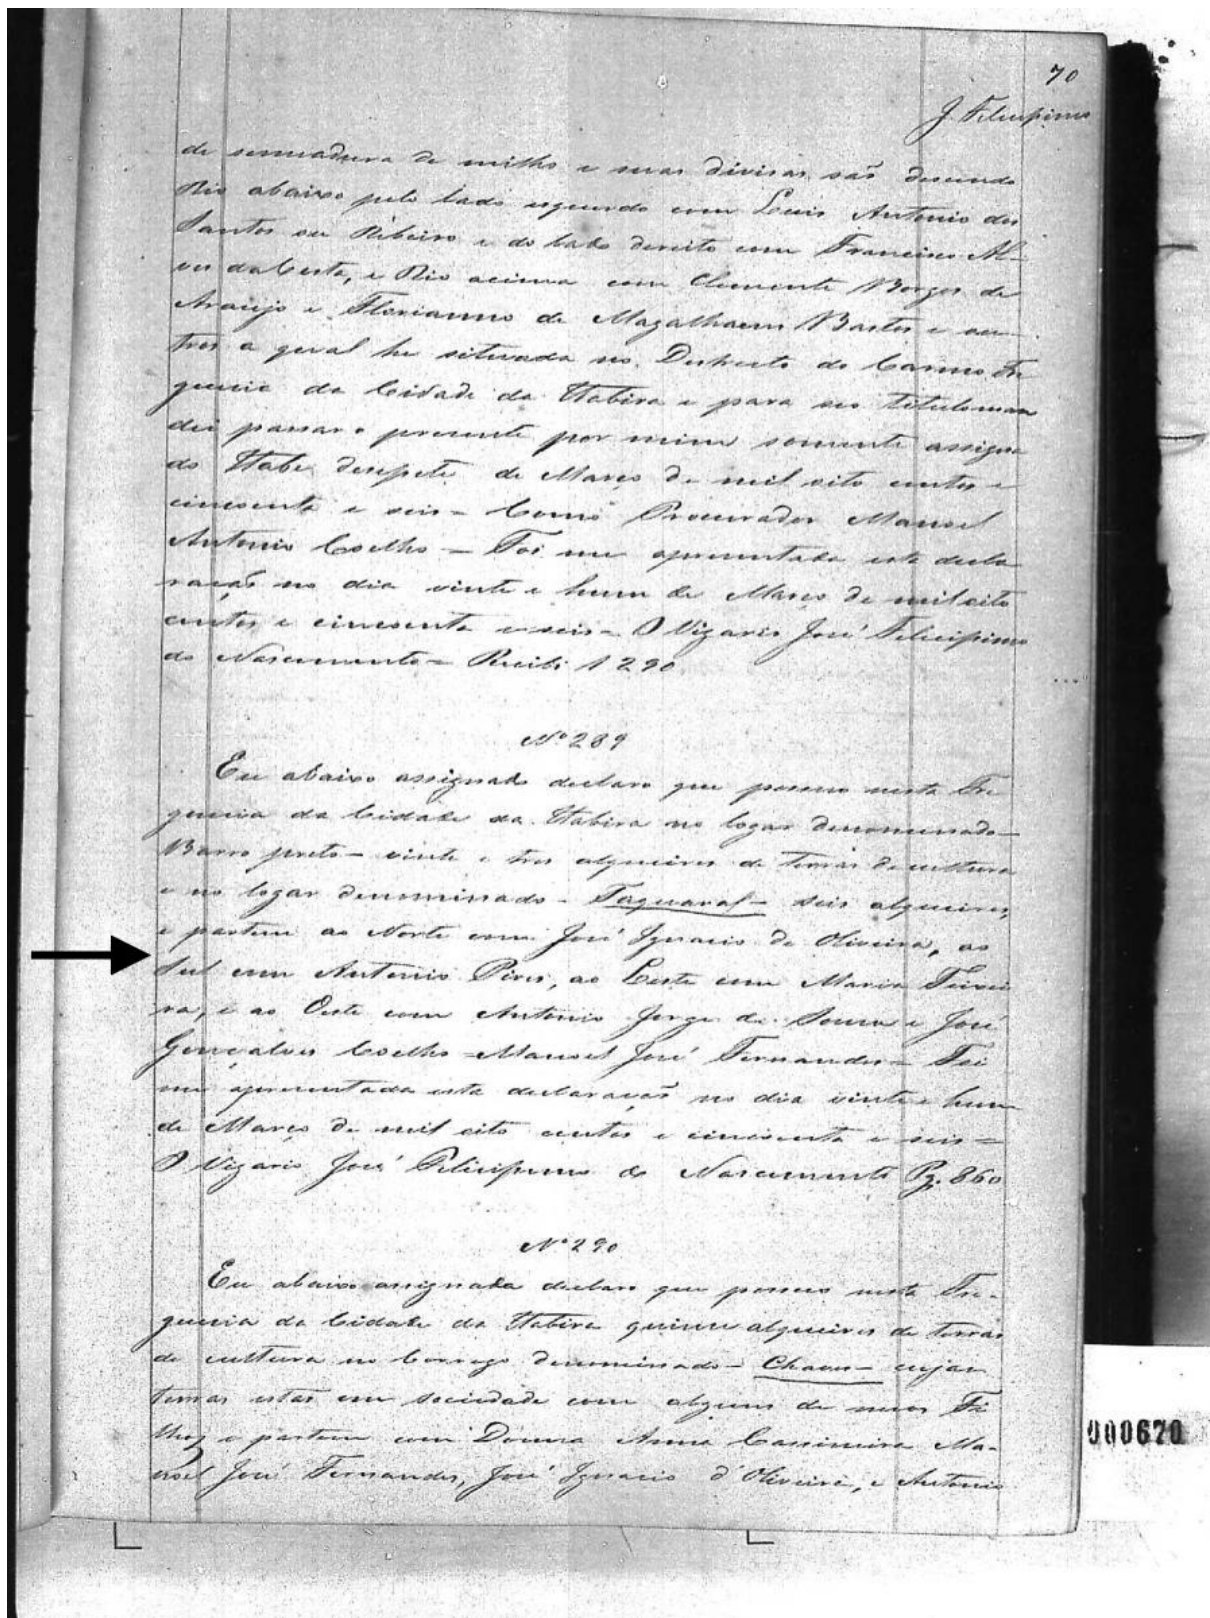 70
J. Felicipimo
de semeadura de milho e suas divisas são descendo
Rio abaixo pelo lado esquerdo com Luis Antonio dos
Santos ou Ribeiro e do lado dereito com Francisco Al-
ves da Costa, e Rio acima com Clemente Borges de
Araujo e Florianno de Magalhaens Bastos e ou
tros a qeral he situada no Destrecto do Carmo Fre
guezia da Cidade da Itabira e para seo titulo man
dei passar o presente por mim somente assigna
do Itabª desesete de Março de mil oito centos e
cincoenta e seis = Como Procurador Manoel
Antonio Coelho = Foi me apresentada esta decla
ração no dia vinte e hum de Março de mil oito
centos e cincoenta e seis = O Vigario José Felicipimo
do Nascimento = Recibi 1290
Nº 289
Eu abaixo assignado declaro que possuo nesta Fre
guezia da Cidade da Itabira no logar denominado -
Barro preto - vinte e tres alqueires de terras de cultura
e no logar denominado - Taquaral - seis alqueires,
e partem ao Norte com José Ignacio de Oliveira, ao
Sul com Antonio Pires, ao Leste com Maria Teixei
ra, e ao Oeste com Antonio Jorge de Souza e José
Gonçalves Coelho = Manoel José Fernandes = Foi
me apresentada esta declaração no dia vinte e hum
de Março de mil oito centos e cincoenta e seis =
O Vigario José Felicipimo do Nascimento Pg. 860
Nº 290
Eu abaixo assignada declaro que possuo nesta Fre-
guezia da Cidade da Itabira quinze alqueires de terras
de cultura no Corrego denominado - Chaves - cujas
terras estão em sociedade com alguns de meos Fi
lhos e partem com Donna Anna Cassimira Ma-
noel José Fernandes, José Ignacio d'Oliveira, e Antonio
000670